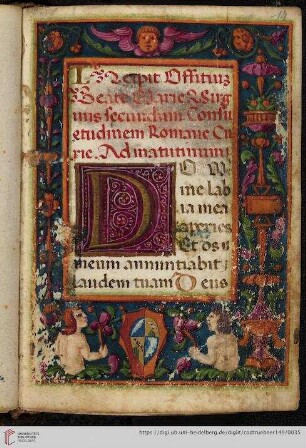 Incipit Offitiuz
Beate Marie Virg
inis secundum Consu
etudinem Romane Cu
rie. Ad matutinum
Domi
ne lab
ia mea
aperies
Et os
meum annuntiabit
laudem tuam Deus
https://digi.ub.uni-heidelberg.de/diglit/codtruebner149/0035
UNIVERSITÄTS-
BIBLIOTHEK
HEIDELBERG